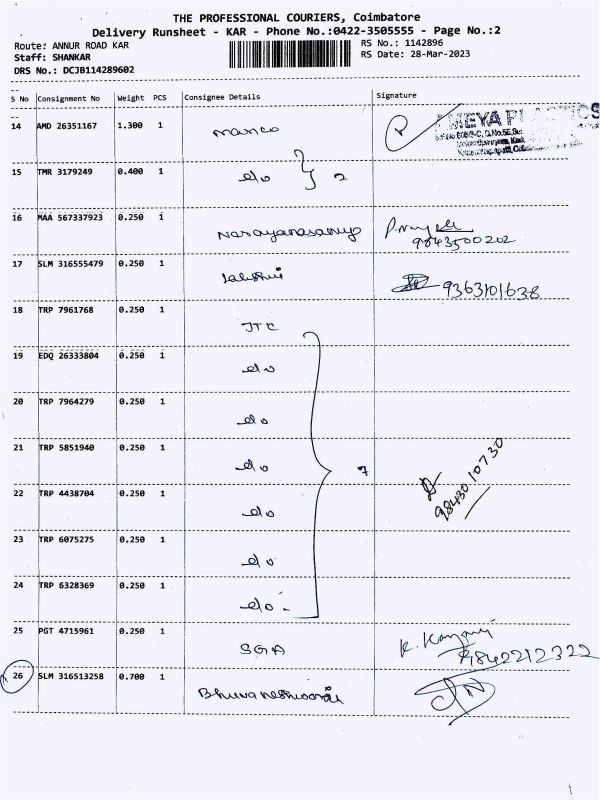 THE PROFESSIONAL COURIERS, Coimbatore
Delivery Runsheet - KAR - Phone No.:0422-3505555 - Page No.:2
Route: ANNUR ROAD KAR
RS No.: 1142896
Staff: SHANKAR
RS Date: 28-Mar-2023
DRS No.: DCJB114289602
S No Consignment No Weight PCS Consignee Details Signature
14 AMD 26351167 1.300 1 Manco
15 TMR 3179249 0.400 1 do 2
16 MAA 567337923 0.250 1 Narayanasamy
9843500202
17 SLM 316555479 0.250 1 Lakshmi 9363101638
18 TRP 7961768 0.250 1 JTC
19 EDQ 26333804 0.250 1 do
20 TRP 7964279 0.250 1 do
21 TRP 5851940 0.250 1 do 7
9843010730
22 TRP 4438704 0.250 1 do
23 TRP 6075275 0.250 1 do
24 TRP 6328369 0.250 1 do
25 PGT 4715961 0.250 1 SGA
9842212322
26 SLM 316513258 0.700 1 Bhuvaneshwari